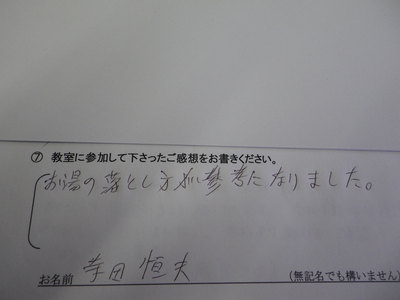 ⑦ 教室に参加して下さったご感想をお書きください。
お湯の落とし方が参考になりました。
お名前 寺田 恒夫 (無記名でも構いません)